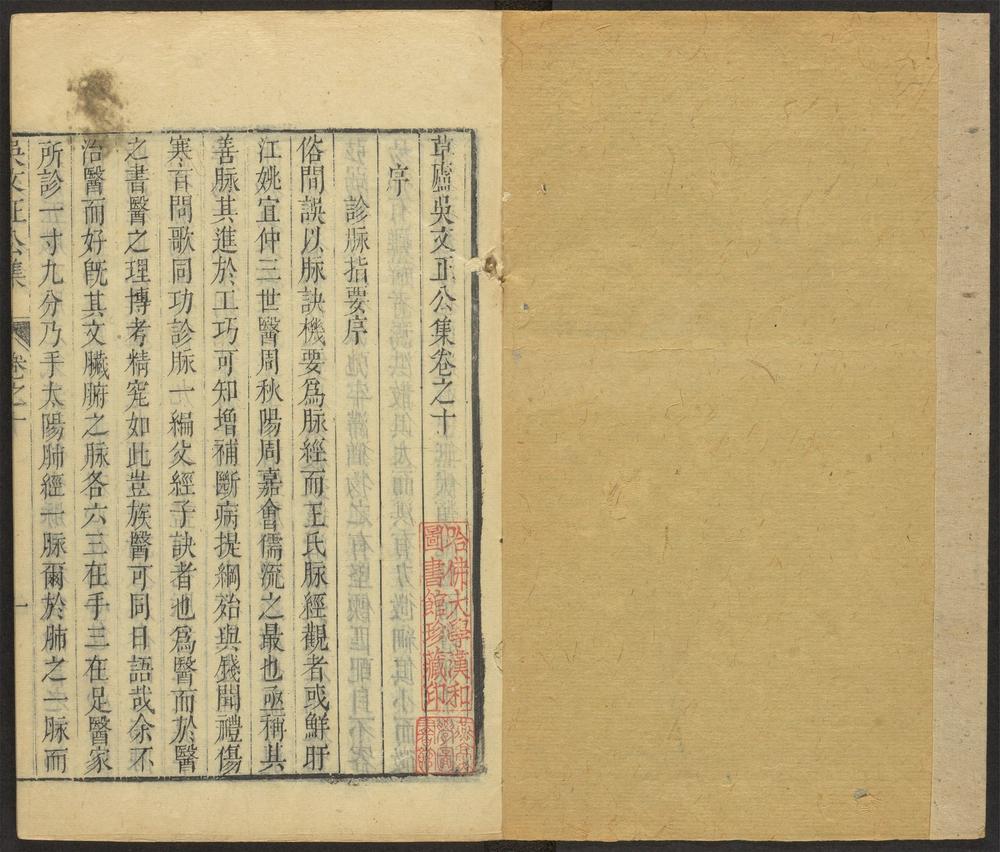 草廬吳文正公集卷之十
序
診脈指要序
俗間誤以脈訣機要爲脈經而王氏脈經觀者或鮮盱
江姚宜仲三世醫周秋陽周嘉會儒流之最也亟稱其
善脈其進於工巧可知增補斷病提綱殆與錢聞禮傷
寒百問歌同功診脈一編父經子訣者也爲醫而於醫
之書醫之理博考精究如此豈族醫可同日語哉余不
治醫而好旣其文臟腑之脈各六三在手三在足醫家
所診一寸九分乃手太陽肺經一脈爾於肺之一脈而
吳文正公集
卷之十
一
哈佛大學漢和
圖書館珍藏印